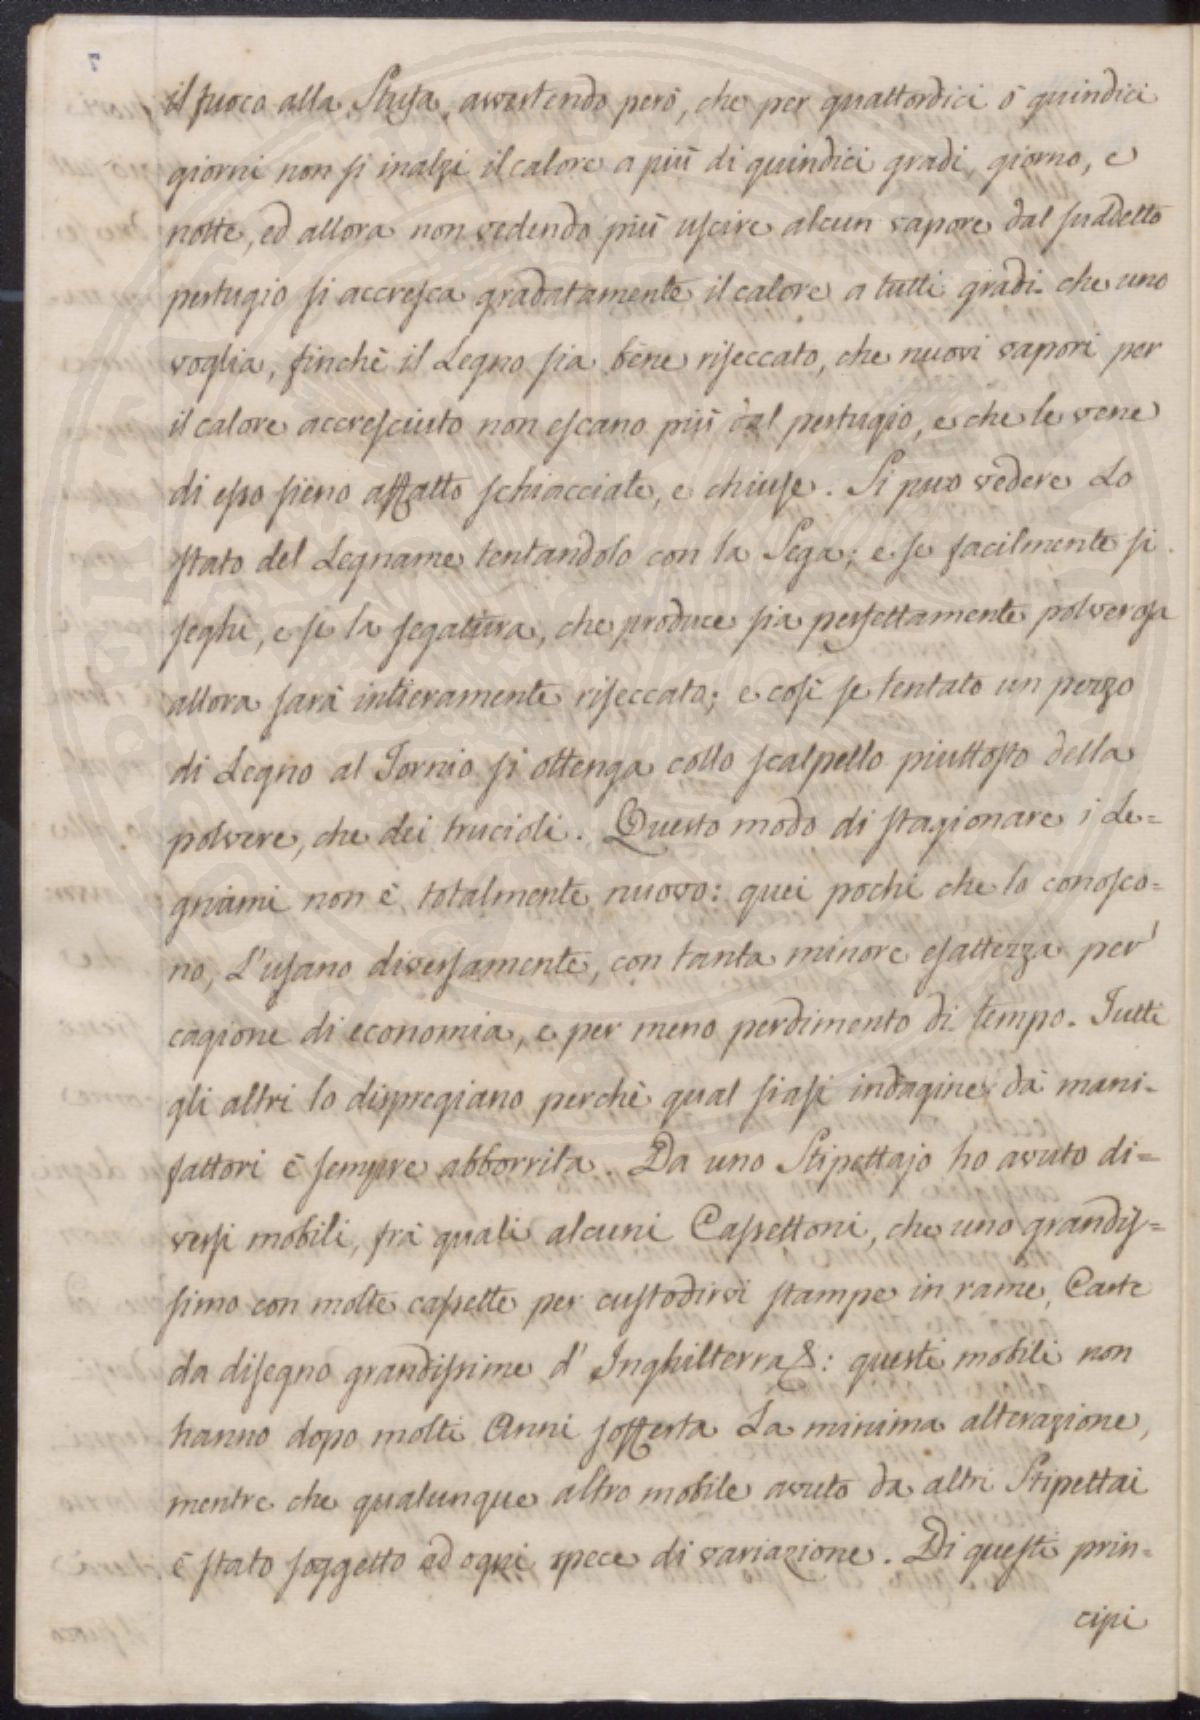 il fuoco alla Stufa, avvertendo però, che per quattordici ò quindici
giorni non si inalzi il calore a più di quindici gradi, giorno, e
notte, ed allora non vedendo più uscire alcun vapore dal suddetto
pertugio si accresca gradatamente il calore a tutti gradi che uno
voglia, finchè il Legno sia bene riseccato, che nuovi vapori per
il calore accresciuto non escano più dal pertugio, e che le vene
di esso sieno affatto schiacciate, e chiuse. Si può vedere Lo
stato del Legname tentandolo con la Sega; e se facilmente si
seghi, e se la segatura, che produce sia perfettamente polverosa
allora sarà intieramente riseccato; e così se tentato un pezzo
di Legno al Tornio si ottenga collo scalpello piuttosto della
polvere, che dei trucioli. Questo modo di stagionare i Le=
gniami non è totalmente nuovo: quei pochi che lo conosco=
no, L'usano diversamente, con tanta minore esattezza per
cagione di economia, e per meno perdimento di tempo. Tutti
gli altri lo dispregiano perchè qual siasi indagine dà mani-
fattori è sempre abborrita. Da uno Stipettajo ho avuto di=
versi mobili, frà quali alcuni Cassettoni, che uno grandis=
simo con molte cassette per custodirvi stampe in rame, Carte
da disegno grandissime d' Inghilterra &: questi mobili non
hanno dopo molti Anni sofferta La minima alterazione,
mentre che qualunque altro mobile avuto da altri Stipettai
è stato soggetto ad ogni spece di variazione. Di questi prin=
cipi